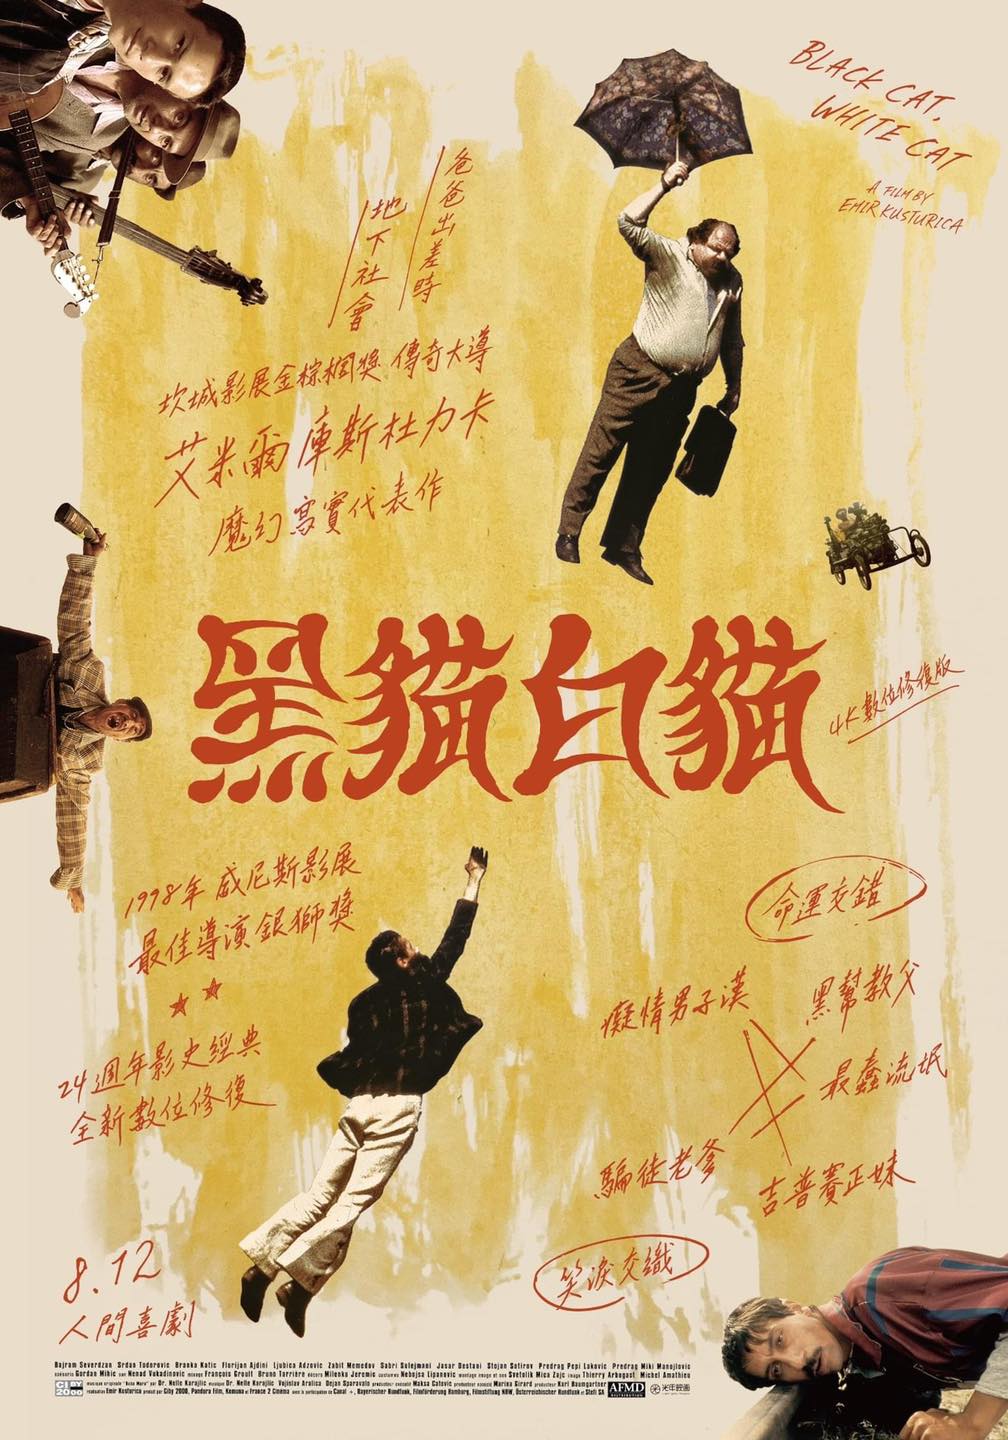 BLACK CAT,
WHITE CAT
A FILM BY
EMIR KUSTURICA
爸爸出差時
地下社會
坎城影展金棕櫚獎 傳奇大導
艾米爾庫斯杜力卡
魔幻寫實代表作
黑貓白貓
4K數位修復版
1998年 威尼斯影展
最佳導演銀獅獎
24週年影史經典
全新數位修復
命運交錯
癡情男子漢
黑幫教父
最蠢流氓
騙徒老爹
吉普賽正妹
笑淚交織
8.12
人間喜劇
Bajram Severdzan Srdan Todorovic Branka Katic Florijan Ajdini Ljubica Adzovic Zabit Memedov Sabri Sulejmani Jasar Destani Stojan Sotirov Predrag Pepi Lakovic Predrag Miki Manojlovic
scénario Gordan Mihic son Nenad Vukadinovic mixage François Groult Bruno Tarrière décors Milenko Jeremic costumes Nebojsa Lipanovic montage image et son Svetolik Mica Zajc image Thierry Arbogast Michel Amathieu
musique originale Dr. Nelle Karajlic Vojislav Aralica Dejan Sparavalo producteur exécutif Maksa Catovic producteur associé Marina Girard producteur Karl Baumgartner
réalisation Emir Kusturica produit par Ciby 2000, Pandora Film, Komuna et France 2 Cinema avec la participation de Canal +, Bayerischer Rundfunk, Filmförderung Hamburg, Filmstiftung NRW, Österreichischer Rundfunk et Stefi SA
CIBY
2000
AFMD
光年映画